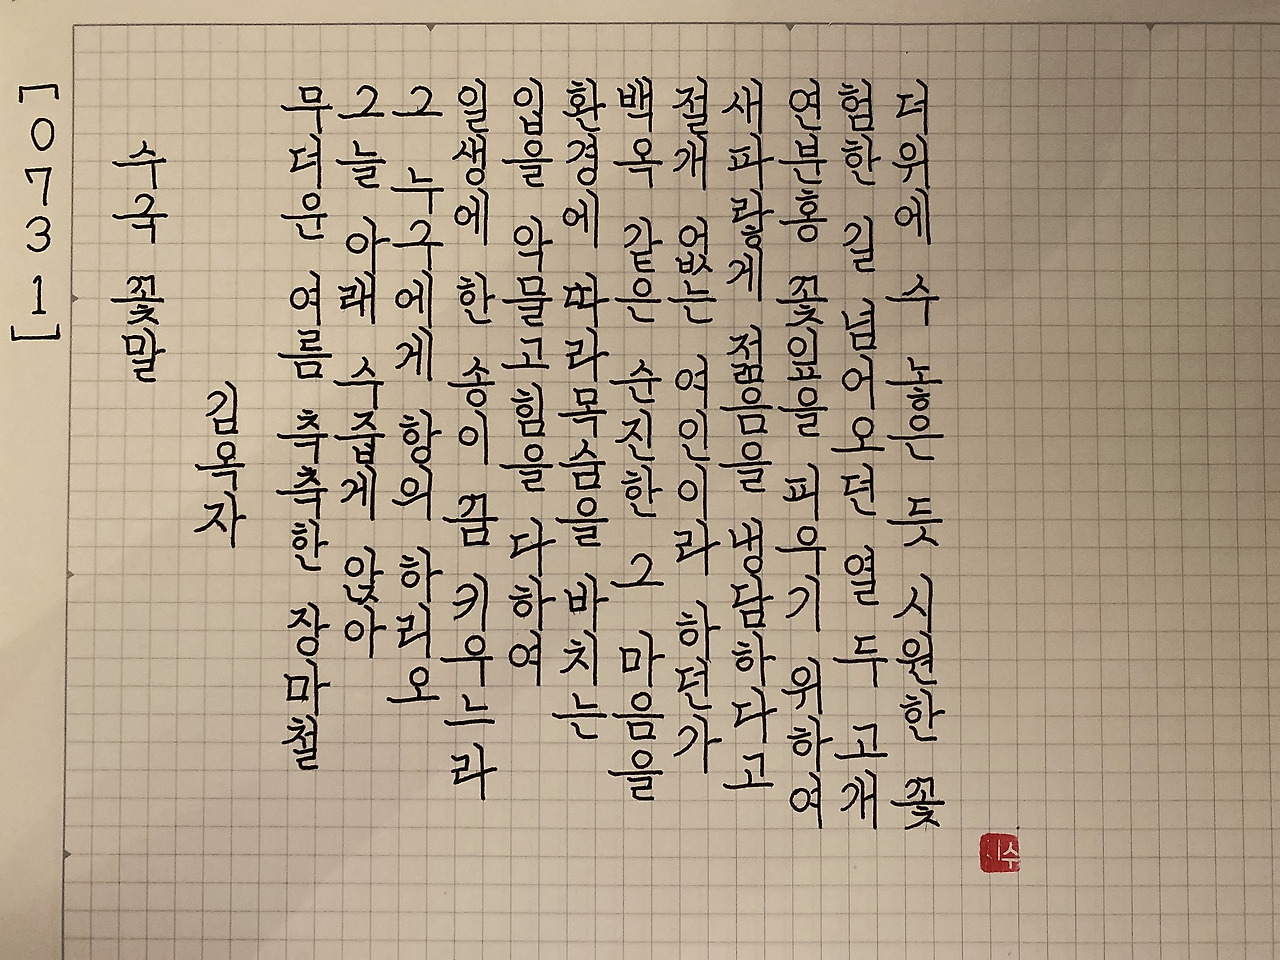 [0731]
수국 꽃말
김옥자
무더운 여름 축축한 장마철
그늘 아래 수줍게 앉아
그 누구에게 항의 하리오
일생에 한 송이 꿈 키우느라
입을 악물고 힘을 다하여
환경에 따라 목숨을 바치는
백옥 같은 순진한 그 마음을
절개 없는 여인이라 하던가
새파랗게 젊음을 냉담하다고
연분홍 꽃잎을 피우기 위하여
험한 길 넘어오던 열 두 고개
더위에 수 놓은 듯 시원한 꽃